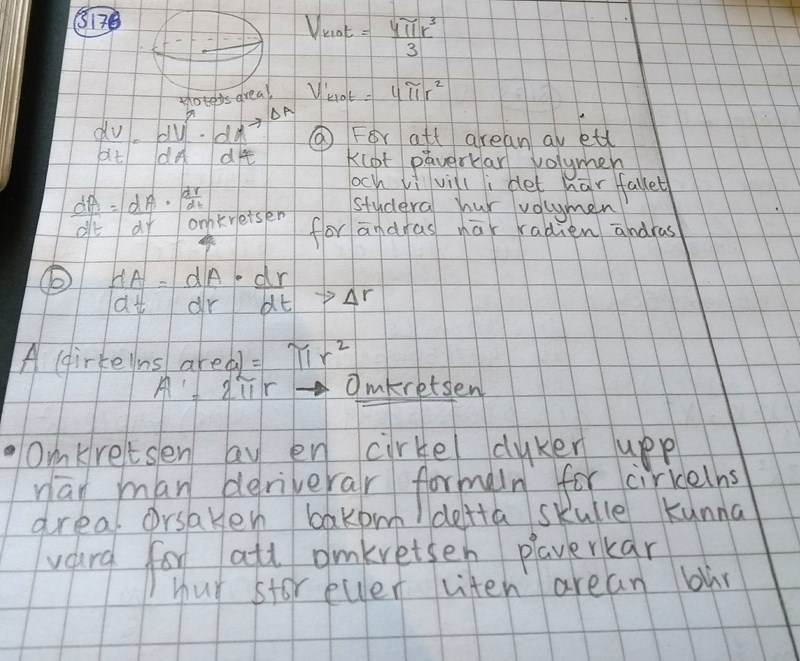 3176
V klot = 4πr³/3
V' klot = 4πr²
klotets area
dV/dt = dV/dA · dA/dt → ΔA
dA/dt = dA/dr · dr/dt
omkretsen
ⓐ För att arean av ett
klot påverkar volymen
och vi vill i det här fallet
studera hur volymen
förändras när radien ändras
ⓑ dA/dt = dA/dr · dr/dt → Δr
A (cirkelns area) = πr²
A' = 2πr → Omkretsen
• Omkretsen av en cirkel dyker upp
när man deriverar formeln för cirkelns
area. Orsaken bakom detta skulle kunna
vara för att omkretsen påverkar
hur stor eller liten arean blir